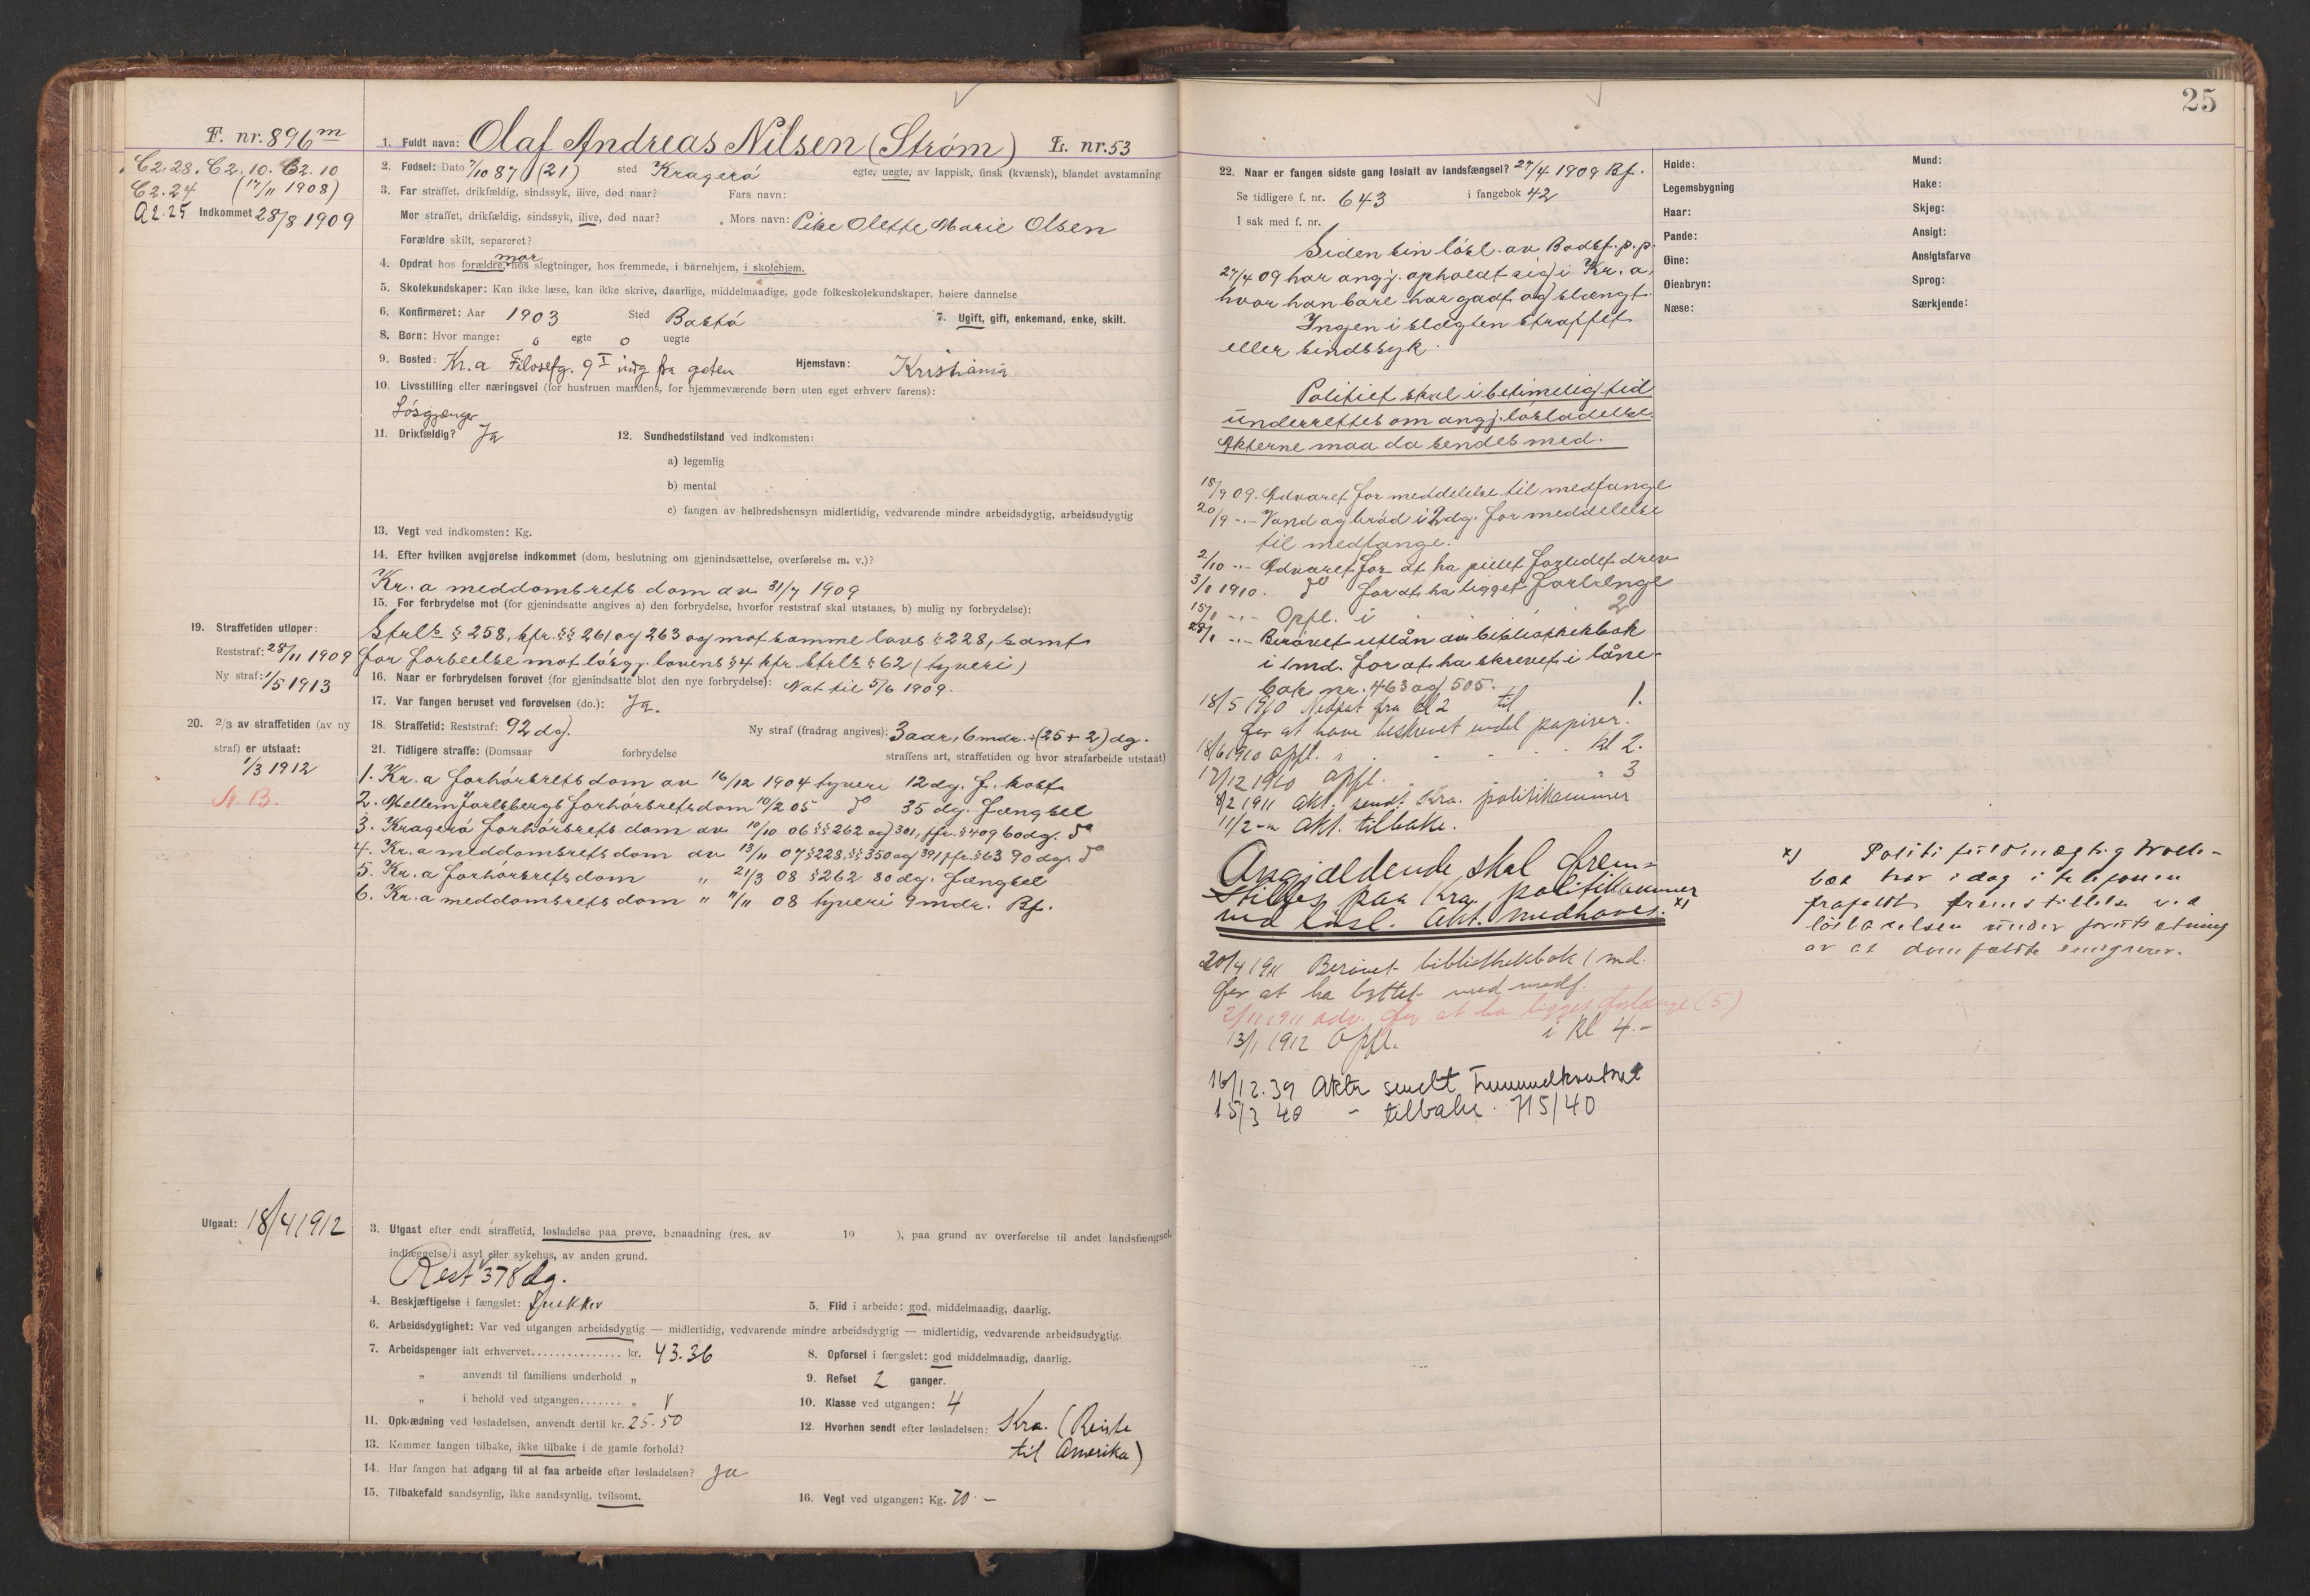 25
F. nr. 896 m
C2.28. C2.10. C2.10
C2.24 (17/11 1908)
A2.25 Indkommet 28/8 1909
1. Fuldt navn: Olaf Andreas Nilsen (Strøm) L. nr. 53
2. Fødsel: Dato 7/10 87 (21) sted Kragerö egte, uegte, av lappisk, finsk (kvænsk), blandet avstamning
3. Far straffet, drikfældig, sindssyk, ilive, død naar? Fars navn:
Mor straffet, drikfældig, sindssyk, ilive, død naar? Mors navn: Pike Olette Marie Olsen
Forældre skilt, separeret?
mor
4. Opdrat hos forældre, hos slegtninger, hos fremmede, i barnehjem, i skolehjem.
5. Skolekundskaper: Kan ikke læse, kan ikke skrive, daarlige, middelmaadige, gode folkeskolekundskaper. høiere dannelse
6. Konfirmeret: Aar 1903 Sted Bastö 7. Ugift, gift, enkemand, enke, skilt.
8. Børn: Hvor mange: 0 egte 0 uegte
9. Bosted: Kr.a Filosofg. 9 I indg fra gaten Hjemstavn: Kristiania
10. Livsstilling eller næringsvei (for hustruen mandens, for hjemmeværende børn uten eget erhverv farens):
Lösgjænger
11. Drikfældig? Ja 12. Sundhedstilstand ved indkomsten:
a) legemlig
b) mental
c) fangen av helbredshensyn midlertidig, vedvarende mindre arbeidsdygtig, arbeidsudygtig
13. Vegt ved indkomsten: Kg.
14. Efter hvilken avgjørelse indkommet (dom, beslutning om gjenindsættelse, overførelse m. v.)?
Kr.a meddomsrets dom av 31/7 1909
15. For forbrydelse mot (for gjenindsatte angives a) den forbrydelse, hvorfor reststraf skal utstaaes, b) mulig ny forbrydelse):
19. Straffetiden utløper: Strls § 258, kfr. §§ 261 og 263 og mot samme lovs § 228, samt
Reststraf: 28/11 1909 for forseelse mot lösgj. lovens § 4 kfr. Strls § 62 (tyveri)
Ny straf: 1/5 1913 16. Naar er forbrydelsen forøvet (for gjenindsatte blot den nye forbrydelse): Nat til 5/6 1909.
17. Var fangen beruset ved forøvelsen (do.): Ja.
20. 2/3 av straffetiden (av ny 18. Straffetid: Reststraf: 92 dg. Ny straf (fradrag angives): 3 aar, 6 mdr. ÷ (25 + 2) dg.
straf) er utstaat: 21. Tidligere straffe: (Domsaar forbrydelse straffens art, straffetiden og hvor strafarbeide utstaat)
1/3 1912 1. Kr.a forhörsrets dom av 16/12 1904 tyveri 12 dg. f. kost
N.B. 2. Mellem Jarlsbergs forhörsretsdom 10/2 05 do 35 dg. fængsel
3. Kragerö forhörsrets dom av 10/10 06 §§ 262 og 301, jfr. § 409 60 dg. do
4. Kr.a meddomsrets dom av 13/11 07 § 228, §§ 350 og 391 jfr. § 63 90 dg. do
5. Kr.a forhörsrets dom „ 21/3 08 § 262 80 dg. fængsel
6. Kr.a meddomsrets dom „ 11/11 08 tyveri 9 mdr. Bf.
Utgaat: 18/4 1912 3. Utgaat efter endt straffetid, løsladelse paa prøve, benaadning (res. av 19 ), paa grund av overførelse til andet landsfængsel,
indlæggelse i asyl eller sykehus, av anden grund.
Rest 378 dg.
4. Beskjæftigelse i fængslet: 5. Flid i arbeide: god, middelmaadig, daarlig.
6. Arbeidsdygtighet: Var ved utgangen arbeidsdygtig — midlertidig, vedvarende mindre arbeidsdygtig — midlertidig, vedvarende arbeidsudygtig.
7. Arbeidspenger ialt erhvervet............... kr. 43.36 8. Opførsel i fængslet: god middelmaadig, daarlig.
„ anvendt til familiens underhold „ 9. Refset 2 ganger.
„ i behold ved utgangen....... „ 10. Klasse ved utgangen: 4
11. Opklædning ved løsladelsen, anvendt dertil kr. 25.50 12. Hvorhen sendt efter løsladelsen: Kra. (Reiste
13. Kommer fangen tilbake, ikke tilbake i de gamle forhold? til Amerika)
14. Har fangen hat adgang til at faa arbeide efter løsladelsen? Ja
15. Tilbakefald sandsynlig, ikke sandsynlig, tvilsomt. 16. Vegt ved utgangen: Kg. 70.—
22. Naar er fangen sidste gang løslatt av landsfængsel? 27/4 1909 Bf.
Se tidligere f. nr. 643 i fangebok 42
I sak med f. nr.
Siden sin lösl. av Bodsf. p.p.
27/4 09 har angj. opholdt sig i Kr.a,
hvor han bare har gaat og slængt.
Ingen i slægten straffet
eller sindssyk.
Politiet skal i betimelig tid
underrettes om angj. lösladelse.
Akterne maa da sendes med.
18/9 09. Advaret for meddelelse til medfange
20/9 -.- Vand og bröd i 2 dg. for meddelelse
til medfange.
2/10 -.- Advaret for at ha pillet forledet drev
3/1 1910. do for at ha ligget forlænge
15/1 -.- Opfl. i 2
28/1 -.- Berövet utlån av bibliothekbok
i 1 md. for at ha skrevet i låne-
bok nr. 463 og 505.
18/5 1910 Nedsat fra kl 2 til 1.
for at have beskrevet endel papirer.
18/6 1910 opfl. i kl 2.
17/12 1910 opfl. „ 3
8/2 1911 akt. sendt Kra. politikammer
11/2 -„ akt. tilbake.
Angjældende skal frem-
stilles paa Kra. politikammer
ved lösl. Akt. medhaves. x)
20/4 1911 Berövet bibliothekbok 1 md.
for at ha byttet med medf.
2/11 1911 adv. for at ha ligget forlænge (5)
13/1 1912 Opfl. i kl 4.-
16/12.39 Akter sendt
15/3 40 - tilbake. 715/40
Høide:
Legemsbygning
Haar:
Pande:
Øine:
Øienbryn:
Næse:
Mund:
Hake:
Skjeg:
Ansigt:
Ansigtsfarve
Sprog:
Særkjende:
x) Politifuldmægtig
har i dag i telefonen
frafaldt fremstillelse ved
lösladelsen under forutsætning
av at domfældte emigrerer.